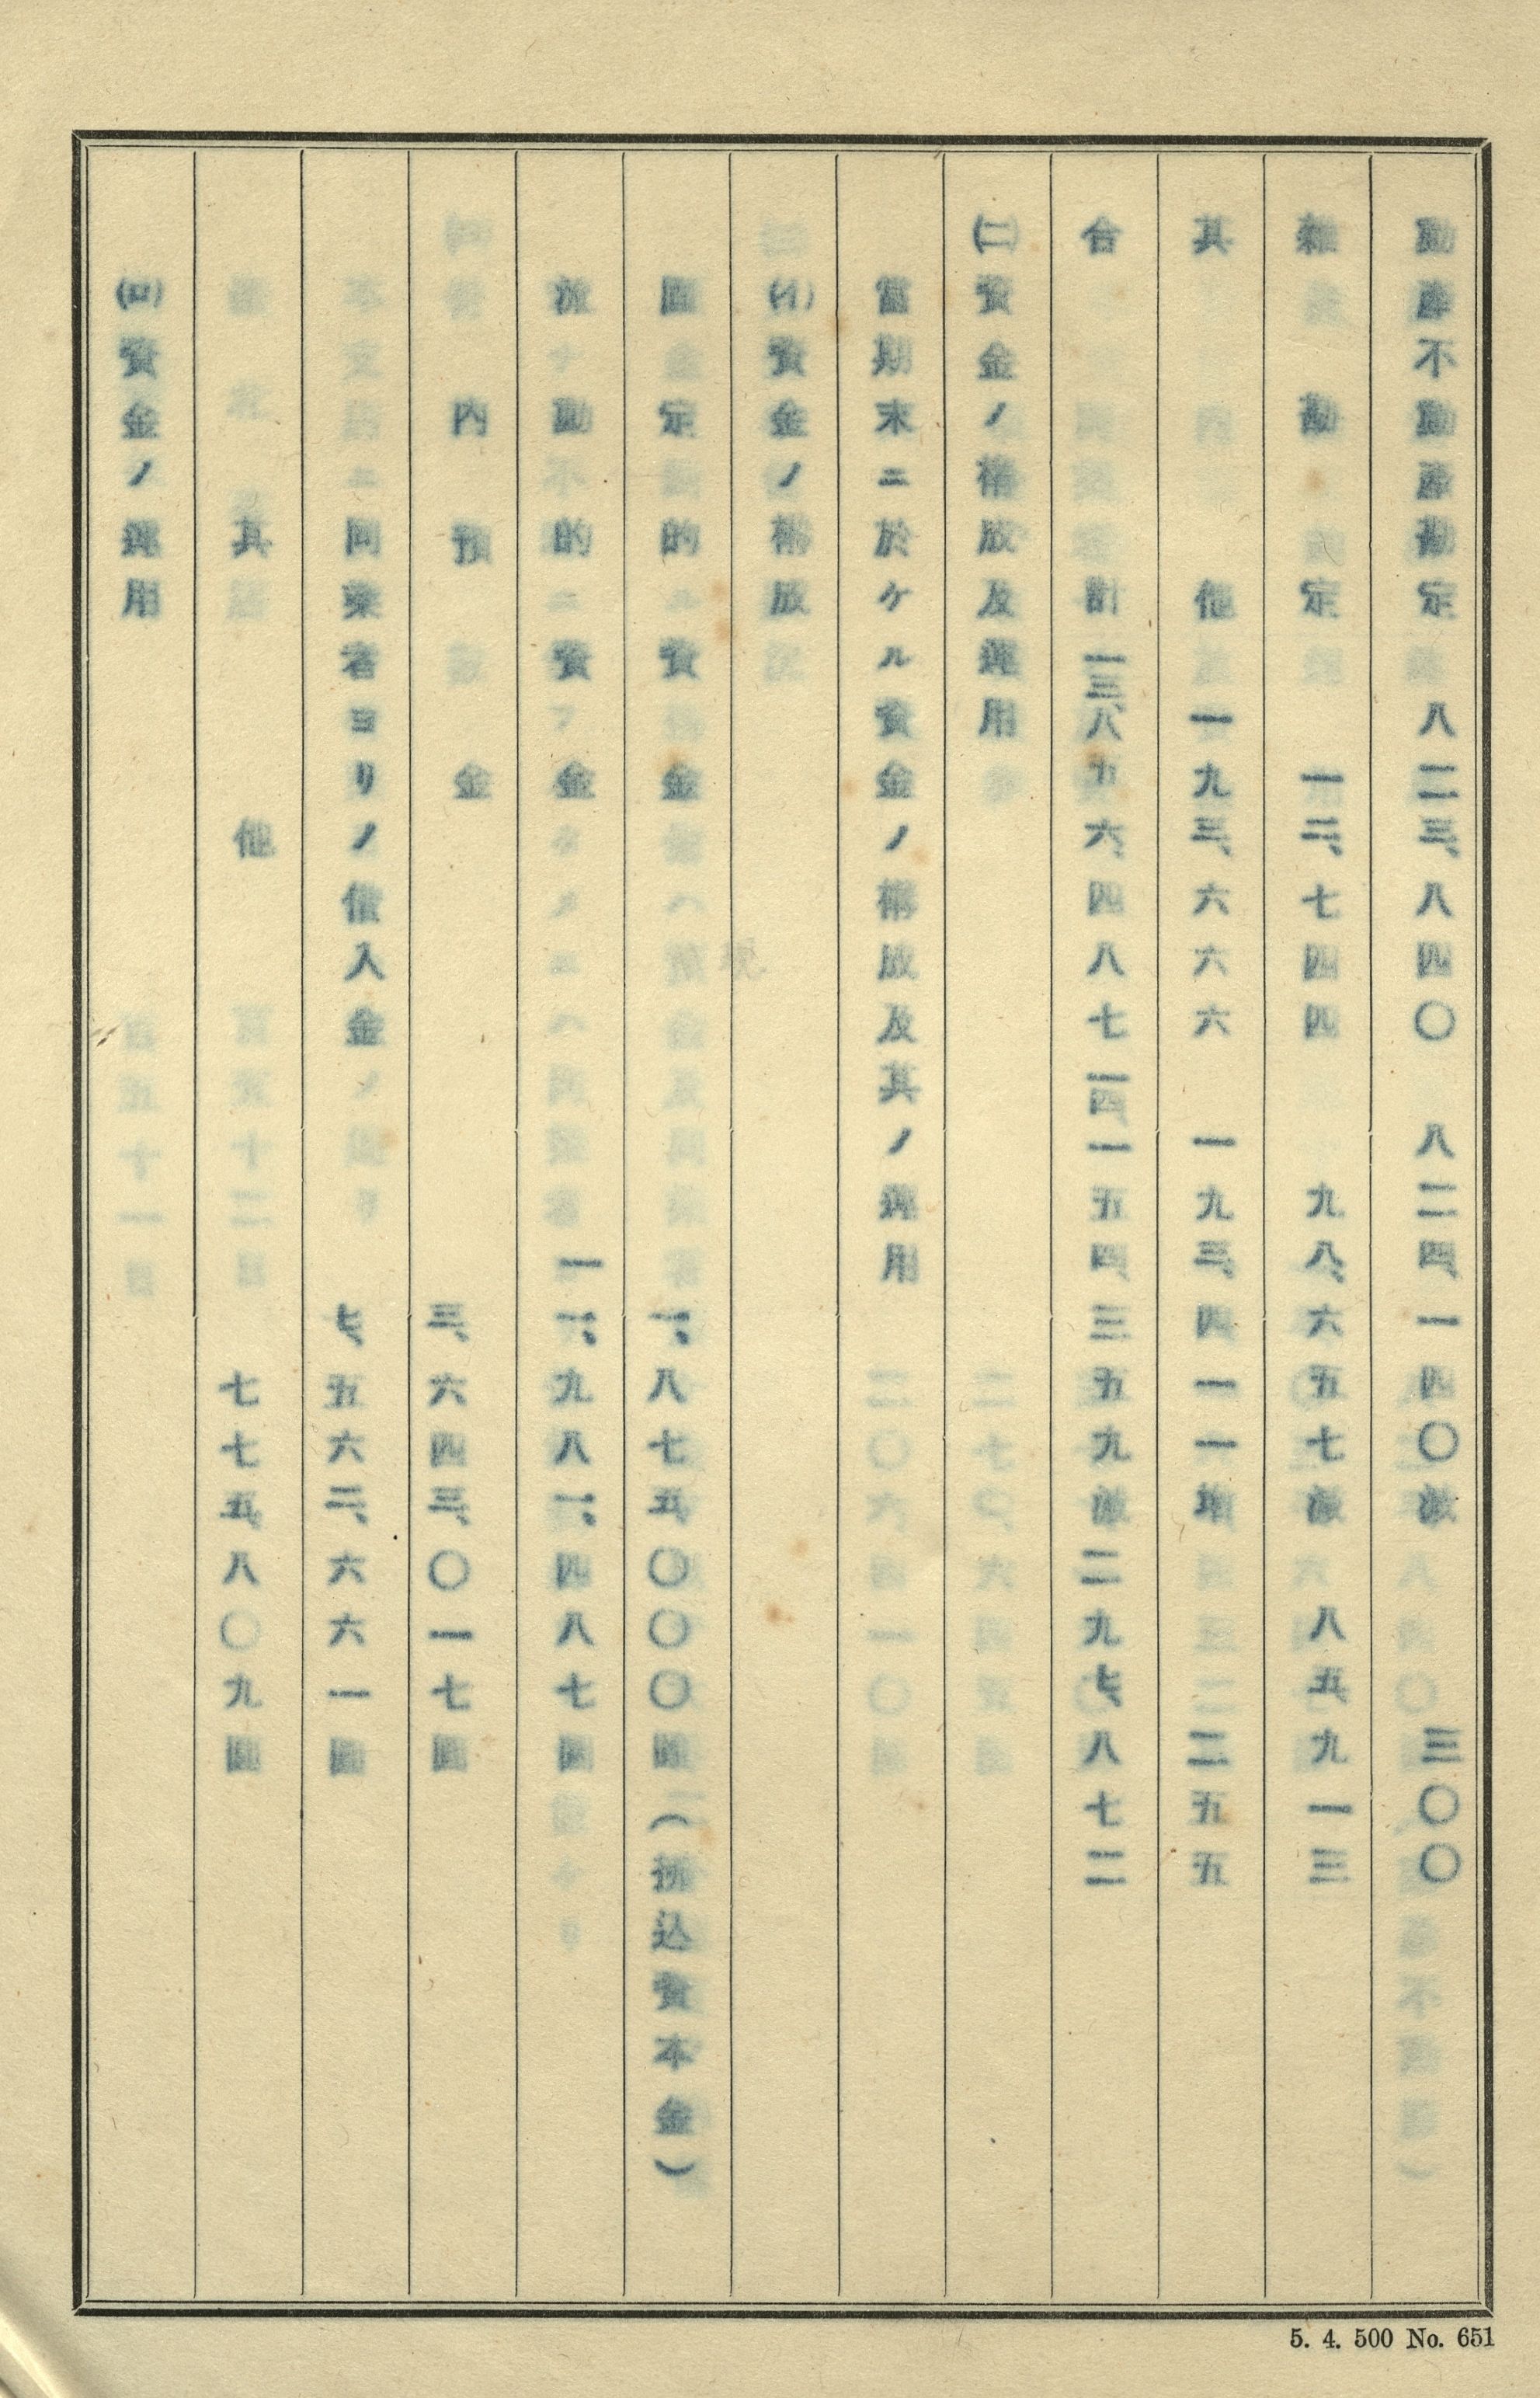 動産不動産勘定 八二三、八四〇 八二四、一四〇 減 三〇〇
雜勘定 一二、七四四 九八、六五七 減 八五、九一三
其他 一九三、六六六 一九三、四一一 増 二五五
合計 一三、八五六、四八七 一四、一五四、三五九 減 二九七、八七二
(二)資金ノ構成及運用
當期末ニ於ケル資金ノ構成及其ノ運用
(イ)資金ノ構成
固定的資金 一、八七五、〇〇〇圓(拂込資本金)
流動的資金 一一、九八一、四八七圓
內預金 三、六四三、〇一七圓
同業者ヨリノ借入金 七、五六二、六六一圓
其他 七七五、八〇九圓
(ロ)資金ノ運用
5. 4. 500 No. 651